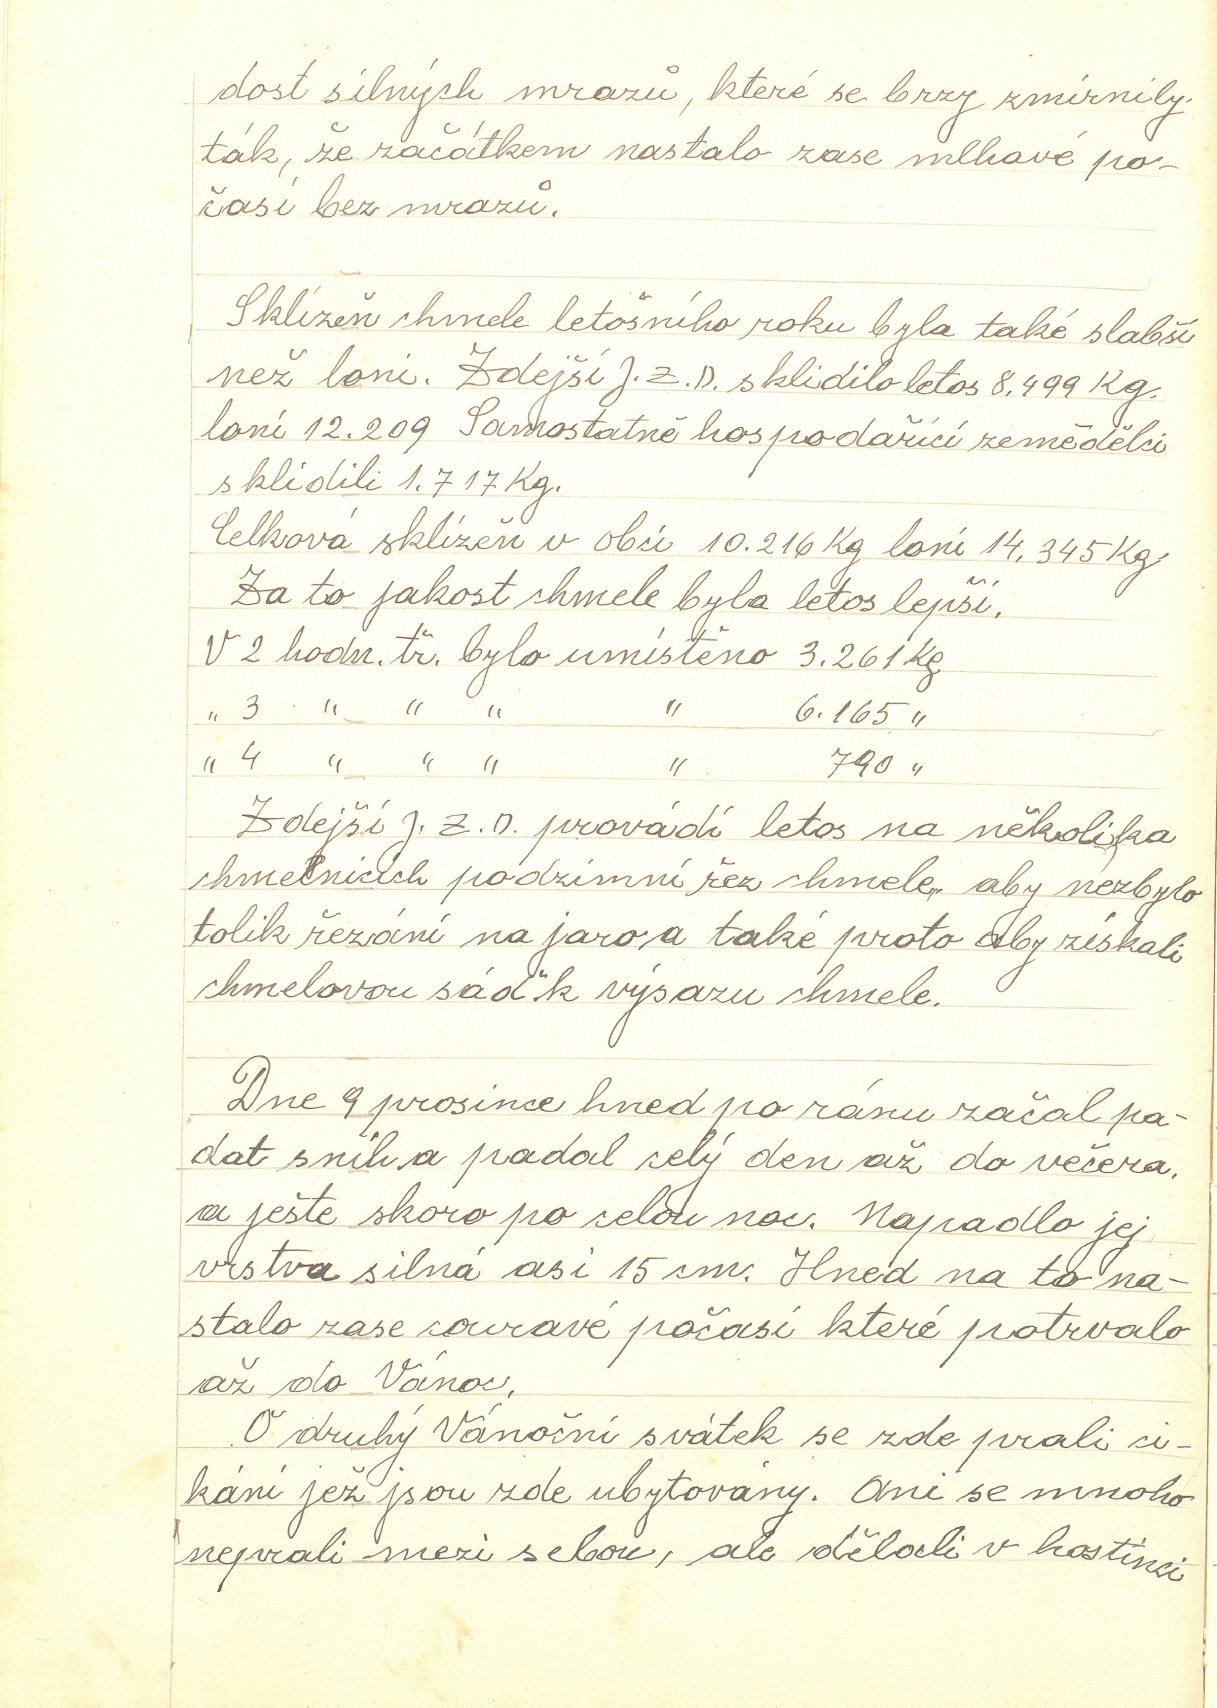 dosť silných mrazů, které se brzy zmírnily.
ták, že začátkem nastalo zase mlhavé po-
časí bez mrazů.
Sklízeň chmele letošního roku byla také slabší
než loni. Zdejší J.Z.D. sklidilo letos 8.499 Kg.
loni 12.209 Samostatně hospodařící zemědělci
sklidili 1.717 Kg.
Celková sklizeň v obci 10.216 Kg loni 14.345 Kg
Za to jakost chmele byla letos lepší.
V 2 hodn. tř. bylo umístěno 3.261 Kg
„ 3 „ „ „ „ 6.165 „
„ 4 „ „ „ „ 790 „
Zdejší J.Z.D. provádí letos na několika
chmelnicích podzimní řez chmele, aby nezbylo
tolik řezání na jaro, a také proto aby získali
chmelovou sáď k výsazu chmele.
Dne 9 prosince hned po ránu začal pa-
dat sníh a padal celý den až do večera.
a ješte skoro po celou noc. Napadlo jej
vrstva silná asi 15 cm. Hned na to na-
stalo zase couravé počasí které potrvalo
až do Vánoc.
O druhý Vánoční svátek se zde prali ci-
káni jež jsou zde ubytovány. Ani se mnoho
neprali mezi sebou, ale dělali v hostinci